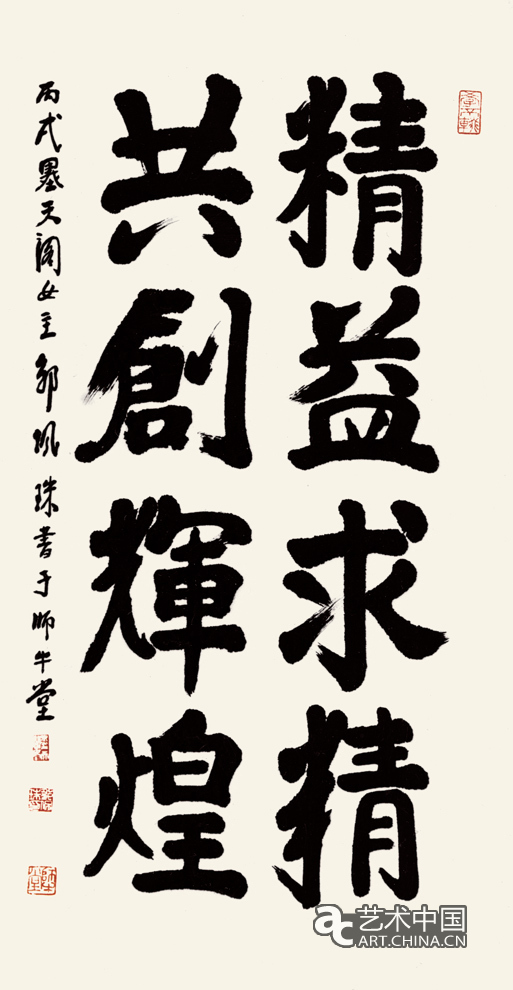 精益求精
共創輝煌
丙戌墨天阁女主邹佩珠書于師牛堂
艺术中国
ART.CHINA.CN